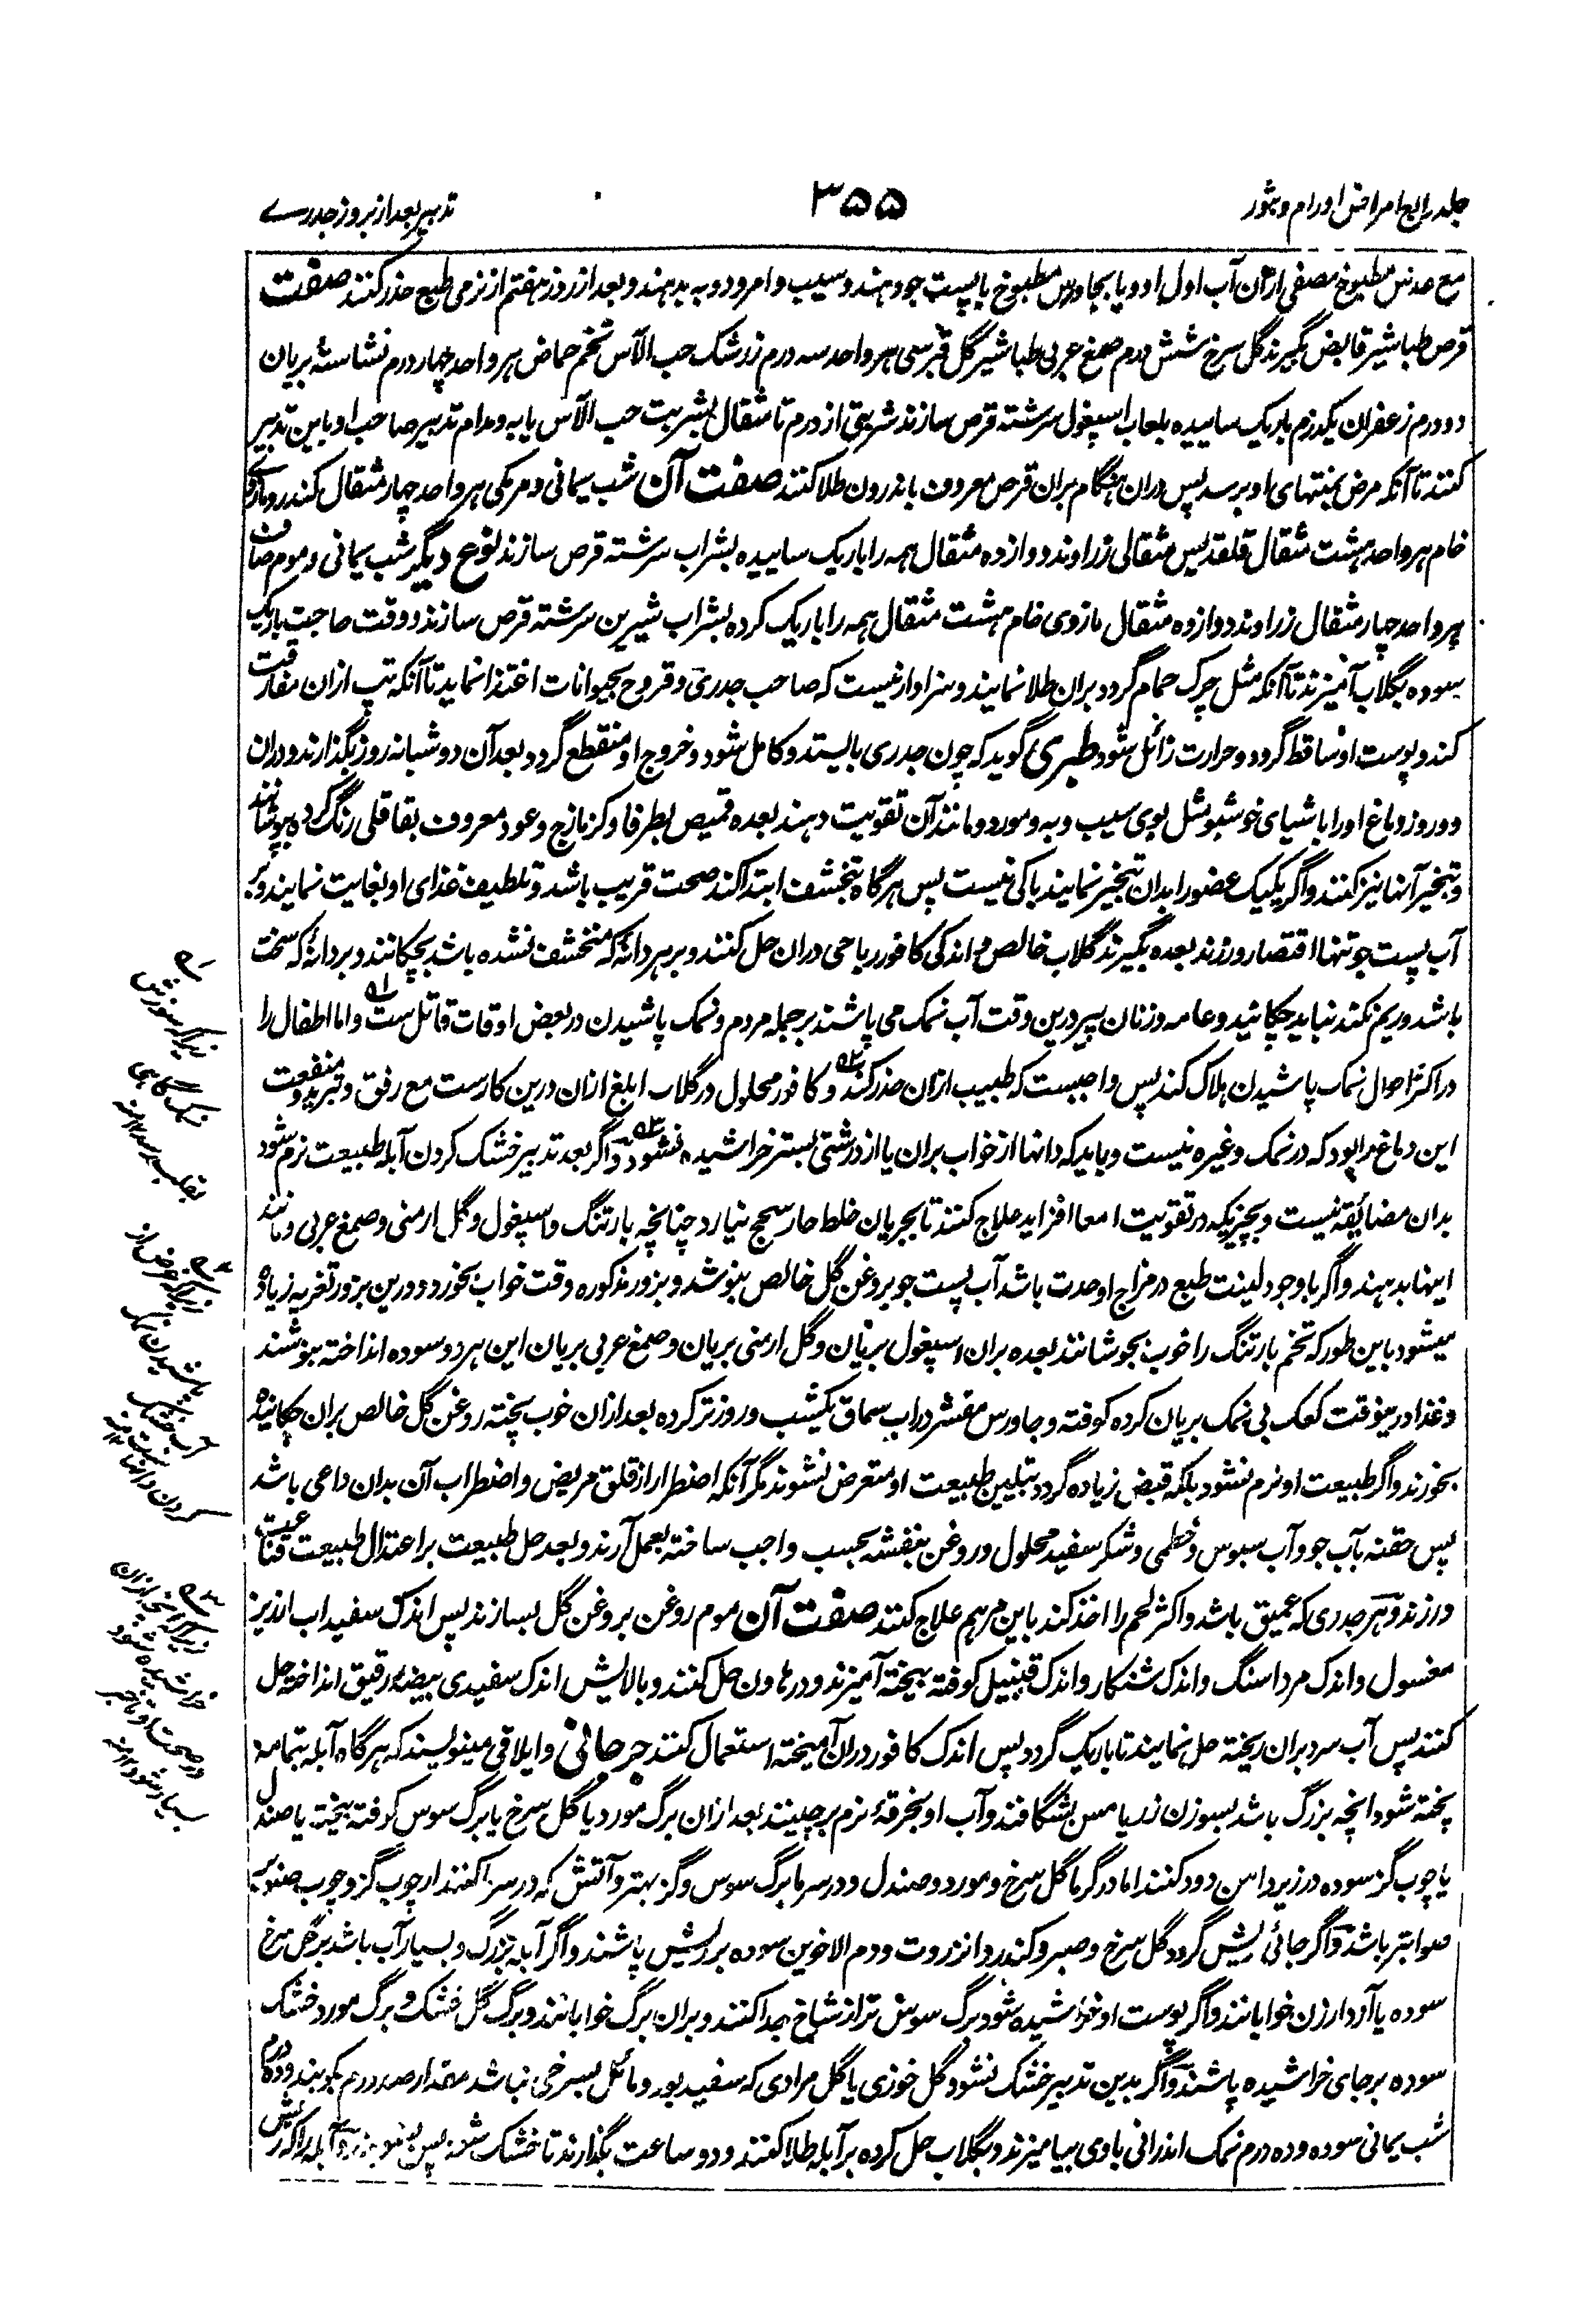 جلد رابع امراض اورام و بثور
۳۵۵
تدبیر بعد از بروز جدری
مع عدس مطبوخ مصفی ازان آب اول او و یا بجاورس مطبوخ یا پست جو دهند و سیب و امرود و به بدهند و بعد از روز هفتم از نرمی طبع حذر کنند صفت
قرص طباشیر قابض بگیرند گل سرخ شش درم صمغ عربی طباشیر گل قبرسی هر واحد سه درم زرشک حب الآس تخم حماض هر واحد چهار درم نشاسته بریان
دو درم زعفران یکدرم باریک ساییده بلعاب اسپغول سرشته قرص سازند شربتی از درم تا مثقال بشربت حب الآس یا به و مدام تدبیر صاحب او باین تدبیر
کنند تا آنکه مرض بمنتهای او برسد پس دران هنگام بران قرص معروف باندرون طلا کنند صفت آن شب یمانی و مر مکی هر واحد چهار مثقال کندر و مازوی
خام هر واحد هشت مثقال قلقدیس مثقالی زراوند دوازده مثقال همه را باریک ساییده بشراب سرشته قرص سازند نوع دیگر شب یمانی و موم صاف
هر واحد چهار مثقال زراوند دوازده مثقال مازوی خام هشت مثقال همه را باریک کرده بشراب شیرین سرشته قرص سازند و وقت حاجت باریک
سوده بگلاب آمیزند تا آنکه مثل چرک حمام گردد بران طلا نمایند و سزاوار نیست که صاحب جدری و قروح بحیوانات اغتذا نماید تا آنکه تپ ازان مفارقت
کند و پوست او ساقط گردد و حرارت زائل شود طبری گوید که چون جدری بالیستد و کامل شود و خروج او منقطع گردد بعد آن دو شبانه روز بگذارند و دران
دو روز دماغ او را باشیای خوشبو مثل بوی سیب و به و مورد و مانند آن تقویت دهند بعده قمیص بطرفا و کزمازج و عود معروف بقاقلی رنگ کرده بپوشانند
و تبخیر آنها نیز کنند و اگر یک یک عضو را بدان تبخیر نمایند باکی نیست پس هرگاه تجفشف ابتدا کند صحت قریب باشد و تلطیف غذای او بغایت نمایند و بر
آب پست جو تنها اقتصار ورزند بعده بگیرند گلاب خالص و اندکی کافور ریاحی دران حل کنند و بر هر دانه که متخشف نشده باشد بچکانند و بر دانه که سخت
باشد و ریم نکند نباید چکانید و عامه و زنان پیر درین وقت آب نمک می پاشند بر جمله مردم و نمک پاشیدن در بعض اوقات قاتل ست و اما اطفال را
در اکثر احوال نمک پاشیدن هلاک کند پس واجبست که طبیب ازان حذر کند و کافور محلول در گلاب ابلغ ازان درین کارست مع رفق و تبرید و منفعت
این دماغ را بود که در نمک و غیره نیست و باید که دانها از خواب بران یا از درشتی بستر خراشیده نشود و اگر بعد تدبیر خشک کردن آبله طبیعت نرم شود
بدان مضائقه نیست و بچیزیکه در تقویت امعا افزاید علاج کنند تا بجریان خلط حار سحج نیارد چنانچه بارتنگ و اسپغول و گل ارمنی و صمغ عربی و مانند
اینها بدهند و اگر باوجود لینت طبع در مزاج او حدت باشد آب پست جو بروغن گل خالص بنوشد و بزور مذکوره وقت خواب بخورد و درین بزور تغریه زیاده
میشود باین طور که تخم بارتنگ را خوب بجوشانند بعده بران اسپغول بریان و گل ارمنی بریان و صمغ عربی بریان این هر دو سوده انداخته بنوشند
و غذا درینوقت کعک بی نمک بریان کرده کوفته و جاورس مقشر دراب سماق یکشب و روز تر کرده بعد ازان خوب پخته روغن گل خالص بران چکانیده
بخورند و اگر طبیعت او نرم نشود بلکه قبض زیاده گردد بتلیین طبیعت او متعرض نشوند مگر آنکه اضطرار از قلق مریض و اضطراب آن بدان داعی باشد
پس حقنه بآب جو و آب سبوس و خطمی و شکر سفید محلول و روغن بنفشه بحسب واجب ساخته بعمل آرند و بعد حل طبیعت بر اعتدال طبیعت قناعت
ورزند و هر جدری که عمیق باشد و اکثر لحم را اخذ کند باین مرهم علاج کنند صفت آن موم روغن بروغن گل بسازند پس اندک سفیداب ارزیز
مغسول و اندک مرداسنگ و اندک شنکار و اندک قنبیل کوفته بیخته آمیزند و در هاون حل کنند و بالایش اندک سفیدی بیضه رقیق انداخته حل
کنند پس آب سرد بران ریخته حل نمایند تا باریک گردد پس اندک کافور دران آمیخته استعمال کنند جرجانی و ایلاقی مینویسند که هرگاه آبله بتمامه
پخته شود انچه بزرگ باشد بسوزن زر یا مس بشگافند و آب او بخرقه نرم برچینند بعد ازان برگ مورد یا گل سرخ یا برگ سوس کوفته بیخته یا صندل
یا چوب گز سوده در زیر دامن دود کنند اما در گرما گل سرخ و مورد و صندل و در سرما برگ سوس و گز بهتر و آتش که در سرا کنند از چوب گز و چوب صنوبر
صوابتر باشد و اگر جائی ریش گردد گل سرخ و صبر و کندر و انزروت و دم الاخوین سوده بر ریش پاشند و اگر آبله بزرگ و بسیار آب باشد بر گل سرخ
سوده یا آرد ارزن خوابانند و اگر پوست او خراشیده شود برگ سوسن تر از شاخ جدا کنند و بران برگ خوابانند و برگ گل خشک و برگ مورد خشک
سوده بر جای خراشیده پاشند و اگر بدین تدبیر خشک نشود گل خوزی یا گل مرادی که سفید بود و مائل بسرخی نباشد مقدار صد درم بکوبند و ده درم
شب یمانی سوده و ده درم نمک اندرانی باوی بیامیزند و بگلاب حل کرده بر آبله طلا کنند و دو ساعت بگذارند تا خشک شود پس و آبله را که ریش
زیراکه سوزش
نمک گاهی
زیراکه غرض از
پاشیدن نمک
خشک
کردن دانهاست
زیراکه
خراشیده شود
در صحت او تاخیر
بسیار شود